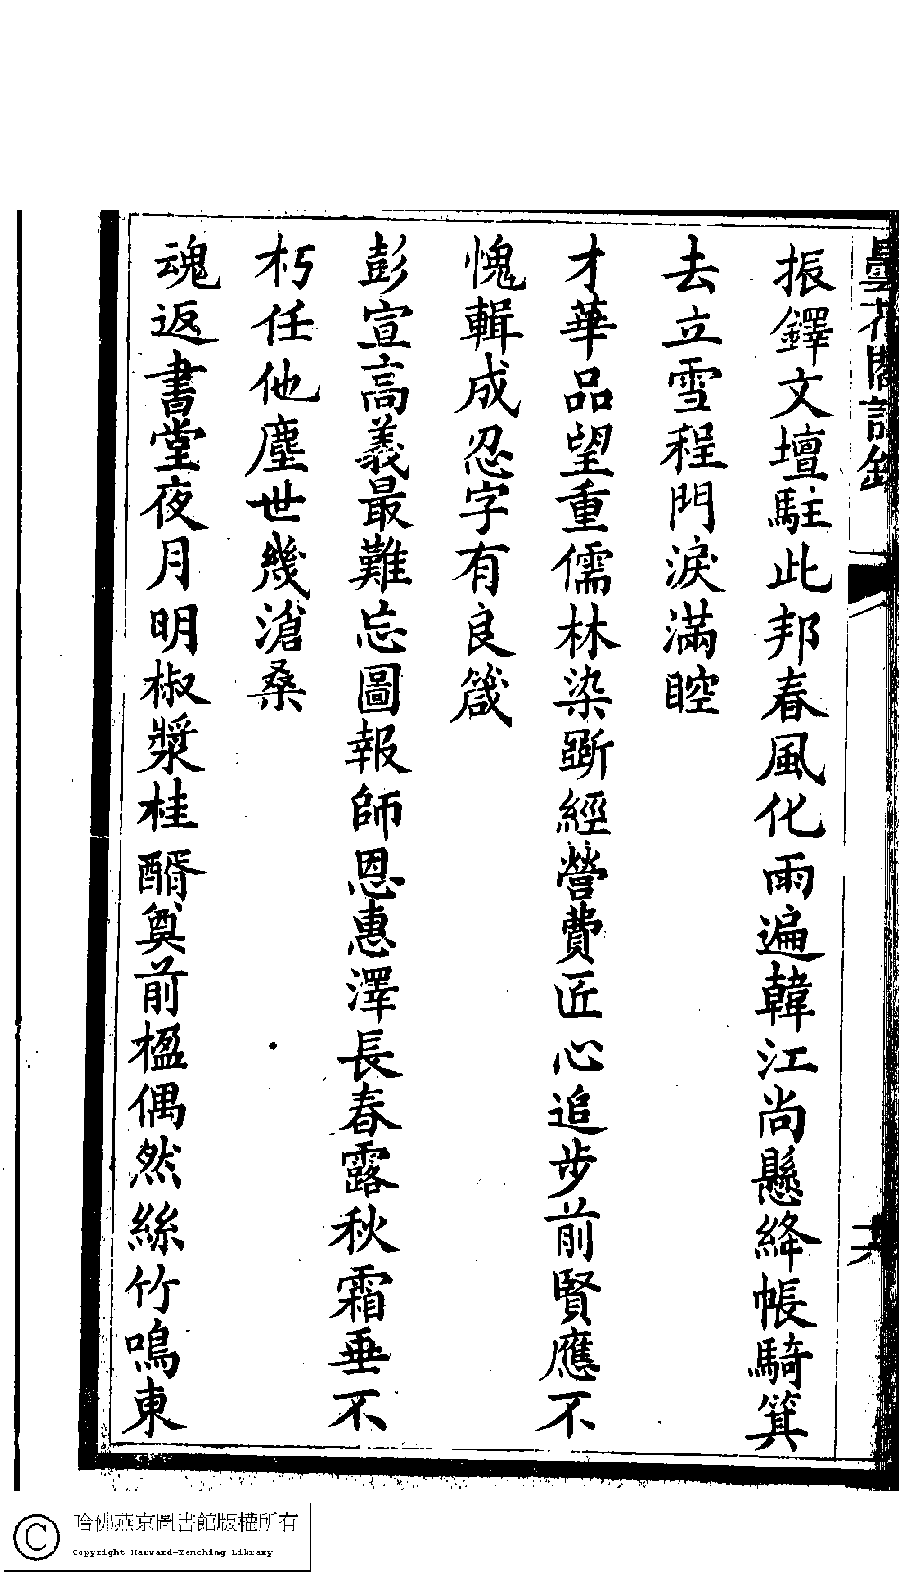 曇花閣詩鈔
振鐸文壇駐此邦春風化雨遍韓江尚懸絳帳騎箕
去立雪程門淚滿腔
才華品望重儒林染斲經營費匠心追步前賢應不
愧輯成忍字有良箴
彭宣高義最難忘圖報師恩惠澤長春露秋霜垂不
朽任他塵世幾滄桑
魂返書堂夜月明椒漿桂醑奠前楹偶然絲竹鳴東
哈佛燕京圖書館版權所有
Copyright Harvard-Yenching Library